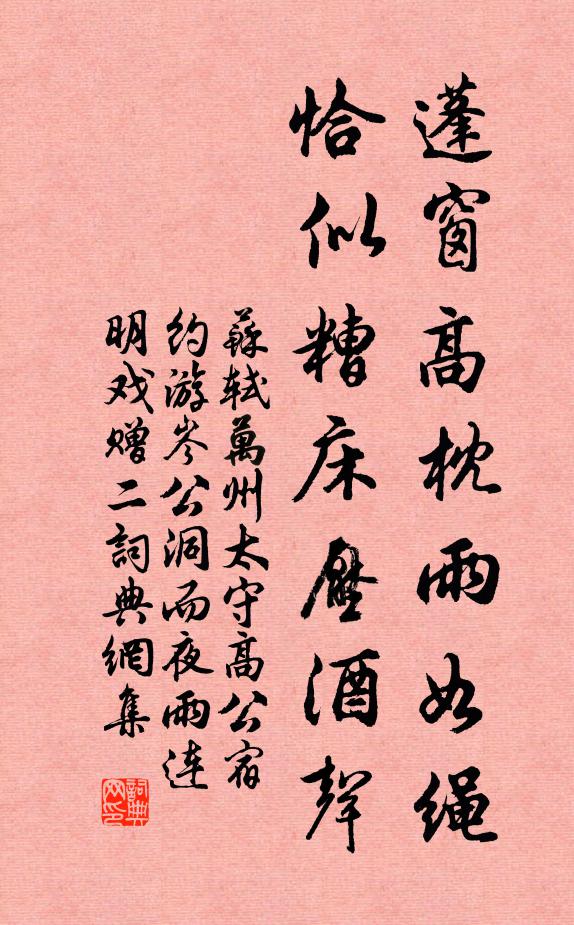 蓬窗高枕雨如绳
恰似糟床壓酒聲
蘇轼萬州太守高公宿
約游岑公洞而夜雨连
明戏赠二詞典網集
詞典网印